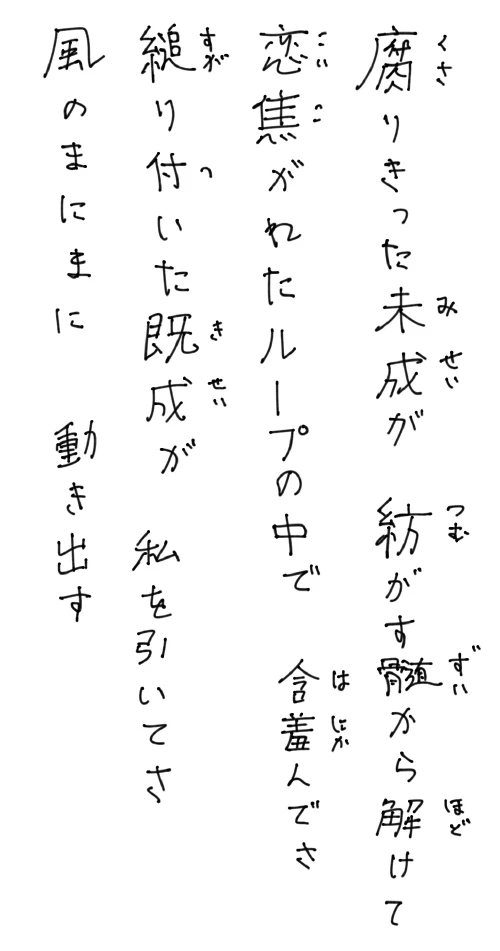 腐りきった未成が 紡がす髄から解けて
くさ み せい つむ ずい ほど
恋焦がれたループの中で 含羞んでさ
こい こ は にか
縋り付いた既成が 私を引いてさ
すが つ き せい
風のまにまに 動き出す